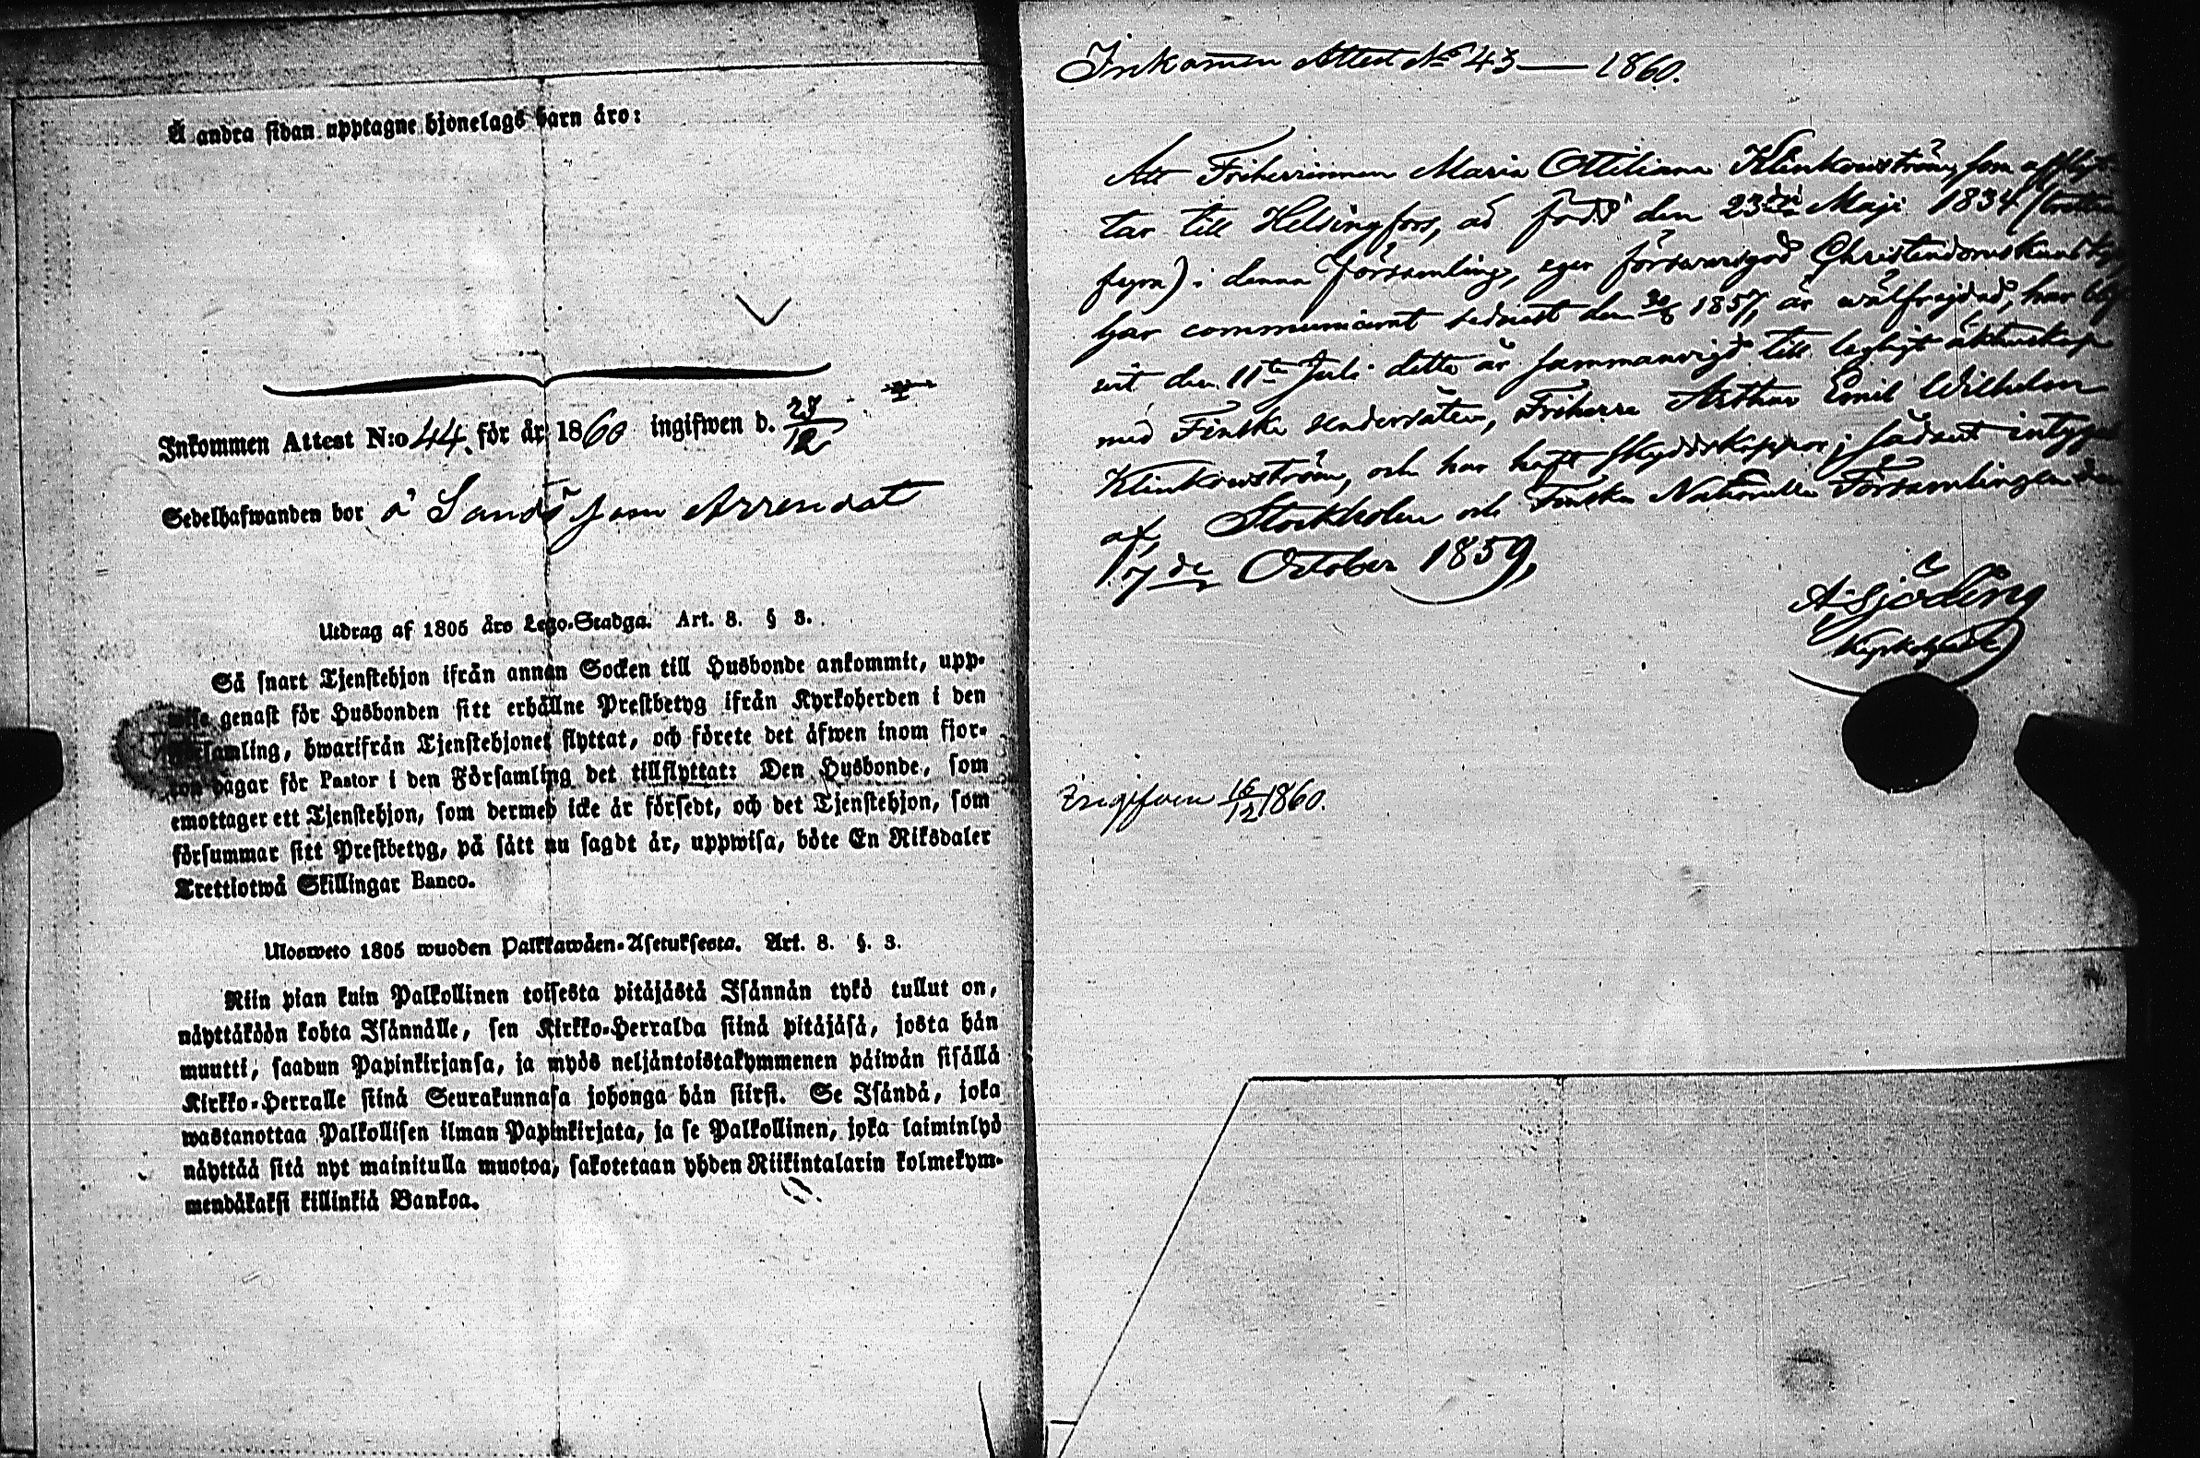 Å andra sidan upptagne hjonelags barn äro:
Inkommen Attest N:o 44. för år 1860 ingifwen d. 28/12
Sedelhafwanden bor å Sandö som Arrendat
Utdrag af 1805 års Lego-Stadga. Art. 8. § 3.
Så snart Tjenstehjon ifrån annan Socken till Husbonde ankommit, upp-
wise genast för Husbonden sitt erhållne Prestbetyg ifrån Kyrkoherden i den
Församling, hwarifrån Tjenstehjonet flyttat, och förete det äfwen inom fjor-
ton dagar för Pastor i den Församling det tillflyttat: Den Husbonde, som
emottager ett Tjenstehjon, som dermed icke är försedt, och det Tjenstehjon, som
försummar sitt Prestbetyg, på sätt nu sagdt är, uppwisa, böte En Riksdaler
Trettiotwå Skillingar Banco.
Ulosweto 1805 wuoden Palkkawäen-Asetuksesta. Art. 8. §. 3.
Niin pian kuin Palkollinen toisesta pitäjästä Isännän tykö tullut on,
näyttäköön kohta Isännälle, sen Kirkko-Herralda siinä pitäjäsä, josta hän
muutti, saadun Papinkirjansa, ja myös neljäntoistakymmenen päiwän sisällä
Kirkko-Herralle siinä Seurakunnasa johonga hän siirsi. Se Isändä, joka
wastanottaa Palkollisen ilman Papinkirjata, ja se Palkollinen, joka laiminlyö
näyttää sitä nyt mainitulla muotoa, sakotetaan yhden Riikintalarin kolmekym-
mendäkaksi killinkiä Bankoa.
Inkommen Attest No 43 — 1860.
Att Friherrinnan Maria Ottiliana Klinkowström, som afflyt-
tar till Helsingfors, är född den 23de Maji 1834 (trettio
fyra) i denna församling, eger försvarsgod Christendomskunskap,
har communicerat sednast den 30/6 1857, är wälfrejdad, har bli-
vit den 11te Juli detta år sammanvigd till lagligt äktenskap
med Finske undersåten, Friherre Arthur Emil Wilhelm
Klinkowström, och har haft skyddskoppor; sådant intygas
af, Stockholm och Finska Nationella Församlingen den
17de October 1859,
A. Sjöding
Kyrkoherde
Ingifven 16/12 1860.